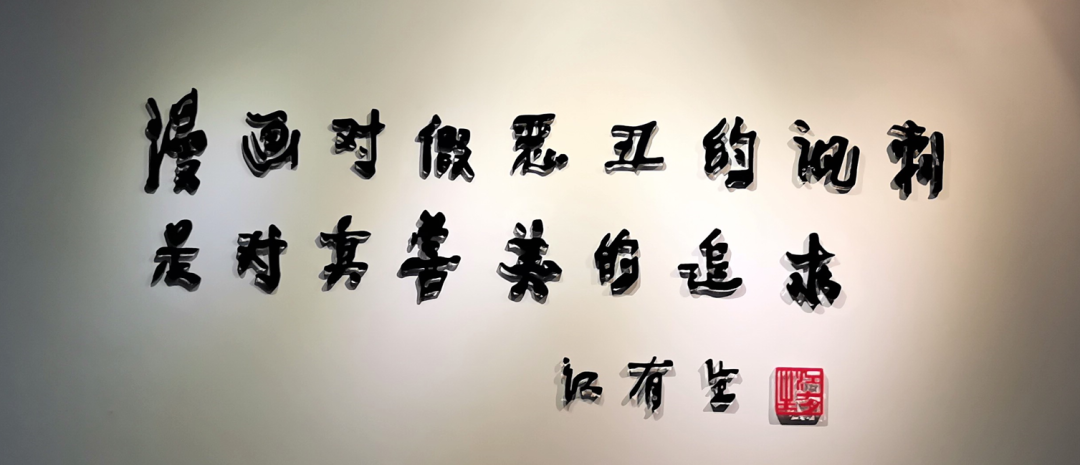 漫画对假恶丑的讽刺
是对真善美的追求
江有生
江有生